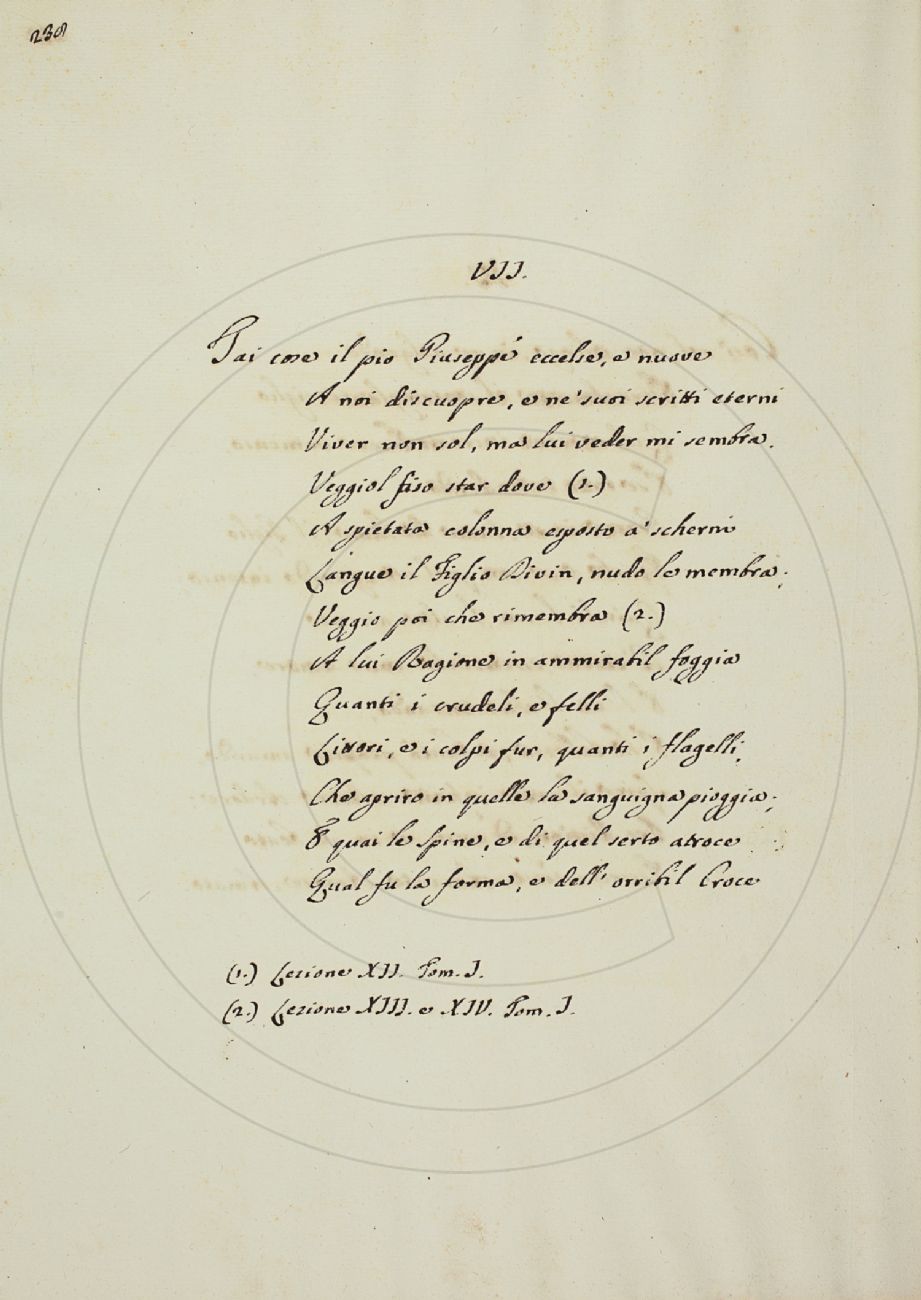 238
VII.
Tai cose il pio Giuseppe eccelse, e nuove
A noi discuopre, e ne' suoi scritti eterni
Viver non sol, ma lui veder mi sembra.
Veggiol fiso star dove (1.)
A spietata colonna esposto a' scherni
Langue il Figlio Divin, nudo le membra;
Veggio poi che rimembra (2.)
A lui Ragione in ammirabil foggia
Quanti i crudeli, e felli
Littori, e i colpi fur, quanti i flagelli,
Che apriro in quelle la sanguigna pioggia;
E quai le spine, e di quel serto atroce
Qual fu la forma, e dell' orribil Croce
(1.) Lezione XII. Tom. I.
(2.) Lezione XIII. e XIV. Tom. I.